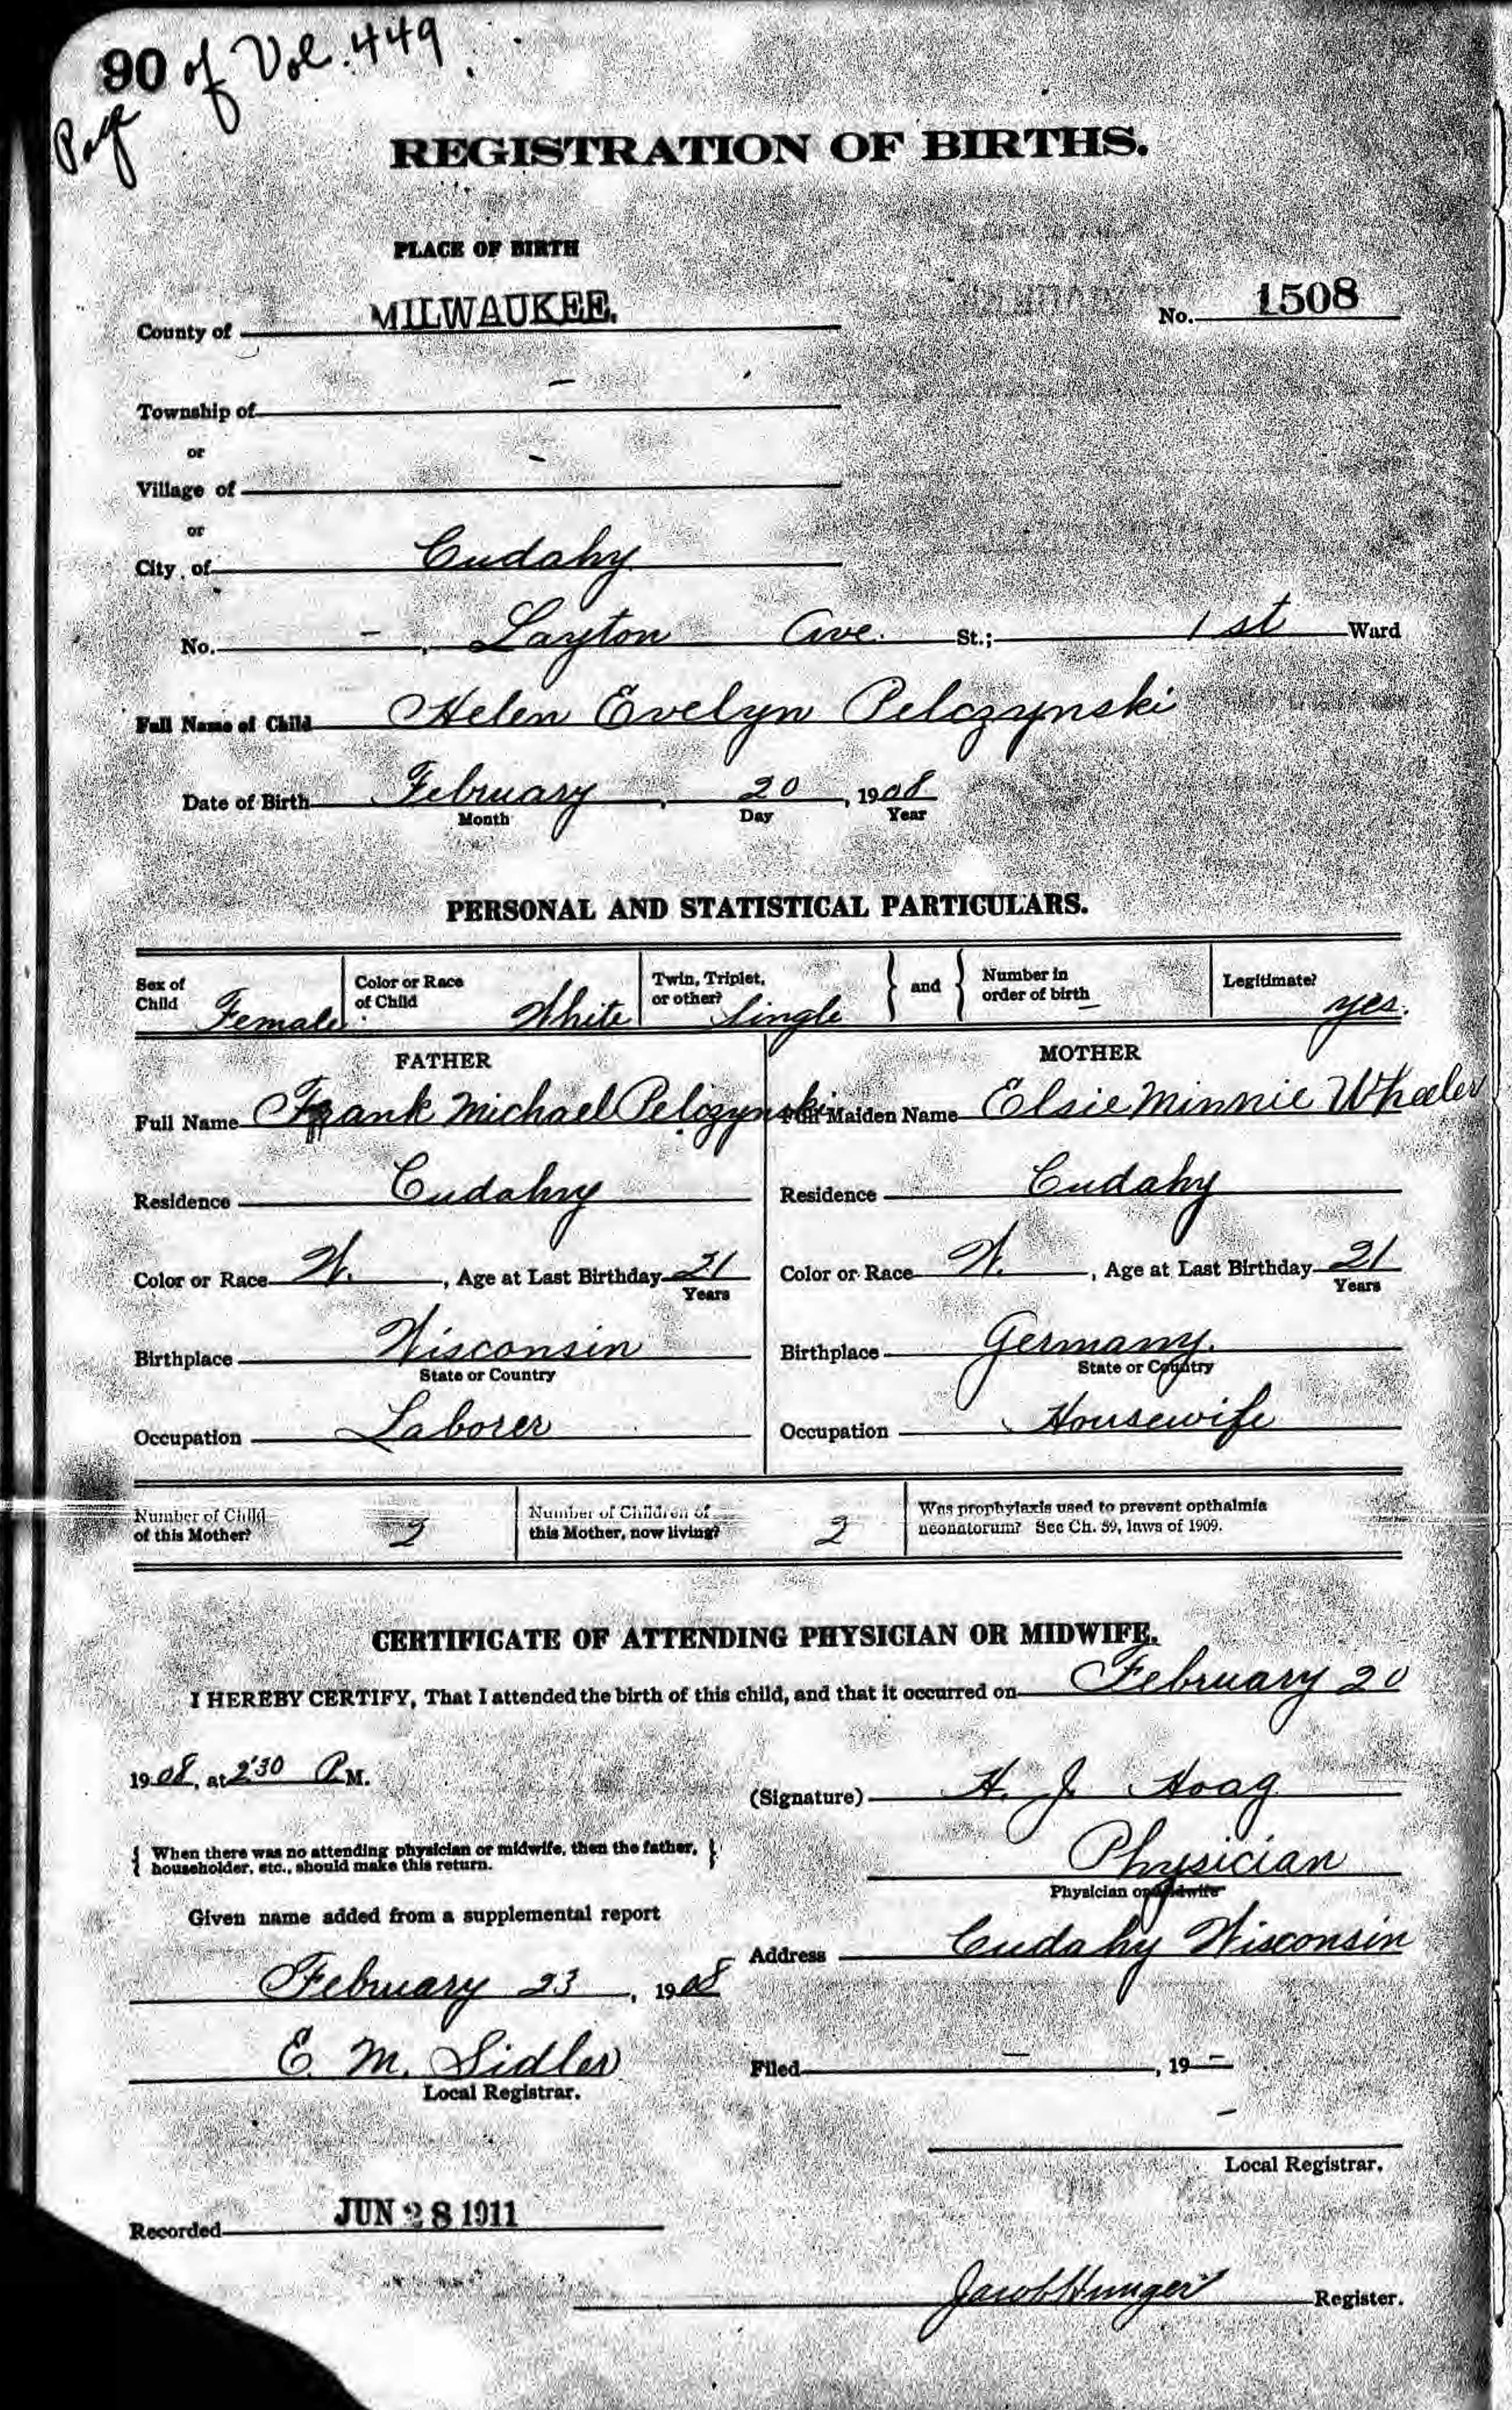 90 of Vol. 449
Page
REGISTRATION OF BIRTHS.
PLACE OF BIRTH
County of MILWAUKEE. No. 1508
Township of –
or
Village of –
or
City of Cudahy
No. – , Layton Ave. St.; 1st Ward
Full Name of Child Helen Evelyn Pelczynski
Date of Birth February , 20 , 1908
Month Day Year
PERSONAL AND STATISTICAL PARTICULARS.
Sex of Child Female Color or Race of Child White Twin, Triplet, or other? Single } and { Number in order of birth – Legitimate? yes.
FATHER MOTHER
Full Name Frank Michael Pelczynski Full Maiden Name Elsie Minnie Wheeler
Residence Cudahy Residence Cudahy
Color or Race W. , Age at Last Birthday 21 Color or Race W. , Age at Last Birthday 21
Years Years
Birthplace Wisconsin Birthplace Germany.
State or Country State or Country
Occupation Laborer Occupation Housewife
Number of Child of this Mother? 2 Number of Children of this Mother, now living? 2 Was prophylaxis used to prevent opthalmia neonatorum? See Ch. 59, laws of 1909.
CERTIFICATE OF ATTENDING PHYSICIAN OR MIDWIFE.
I HEREBY CERTIFY, That I attended the birth of this child, and that it occurred on February 20
1908, at 2:30 P.M.
(Signature) H. J. Hoag
{ When there was no attending physician or midwife, then the father, householder, etc., should make this return. }
Physician
Physician or Midwife
Given name added from a supplemental report
Address Cudahy Wisconsin
February 23 , 1908
E. M. Sidler
Local Registrar.
Filed – , 19 –
–
Local Registrar.
Recorded JUN 28 1911
Jacob Hunger Register.